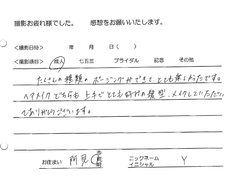 撮影お疲れ様でした。 感想をお願いいたします。
＜撮影日時＞ 年 月 日（ ）
＜撮影項目＞ 成人 七五三 ブライダル 記念 その他
たくさんの種類のポージングができて、とても楽しかったです。
ヘアメイクどちらも上手でとても好みの髪型、メイクしていただいて
ありがとうございます。
お住まい 阿見 市 町 村 ニックネーム イニシャル Y